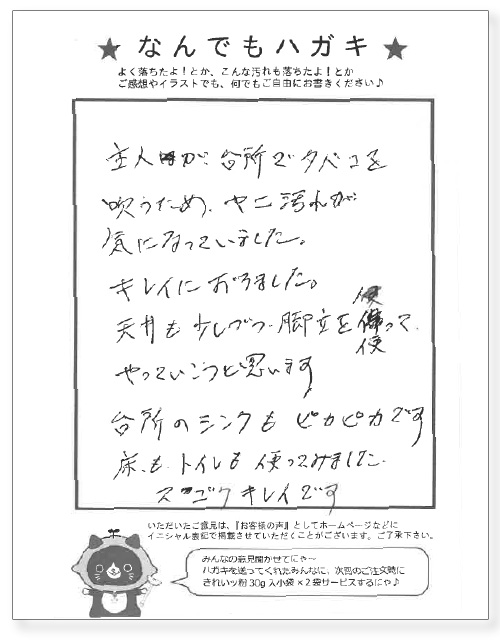 ★ なんでもハガキ ★
よく落ちたよ！とか、こんな汚れも落ちたよ！とか
ご感想やイラストでも、何でもご自由にお書きください♪
主人が、台所でタバコを
吹うため、ヤニ汚れが
気になっていました。
キレイにおちました。
天井も少しづつ脚立を使って、
やっていこうと思います
台所のシンクもピカピカです
床も、トイレも使ってみました。
スゴクキレイです
いただいたご意見は、『お客様の声』としてホームページなどに
イニシャル表記で掲載させていただくことがございます。ご了承下さい。
みんなの意見聞かせてにゃ～
ハガキを送ってくれたみんなに、次回のご注文時に
きれいッ粉30g入小袋×2袋サービスするにゃ♪